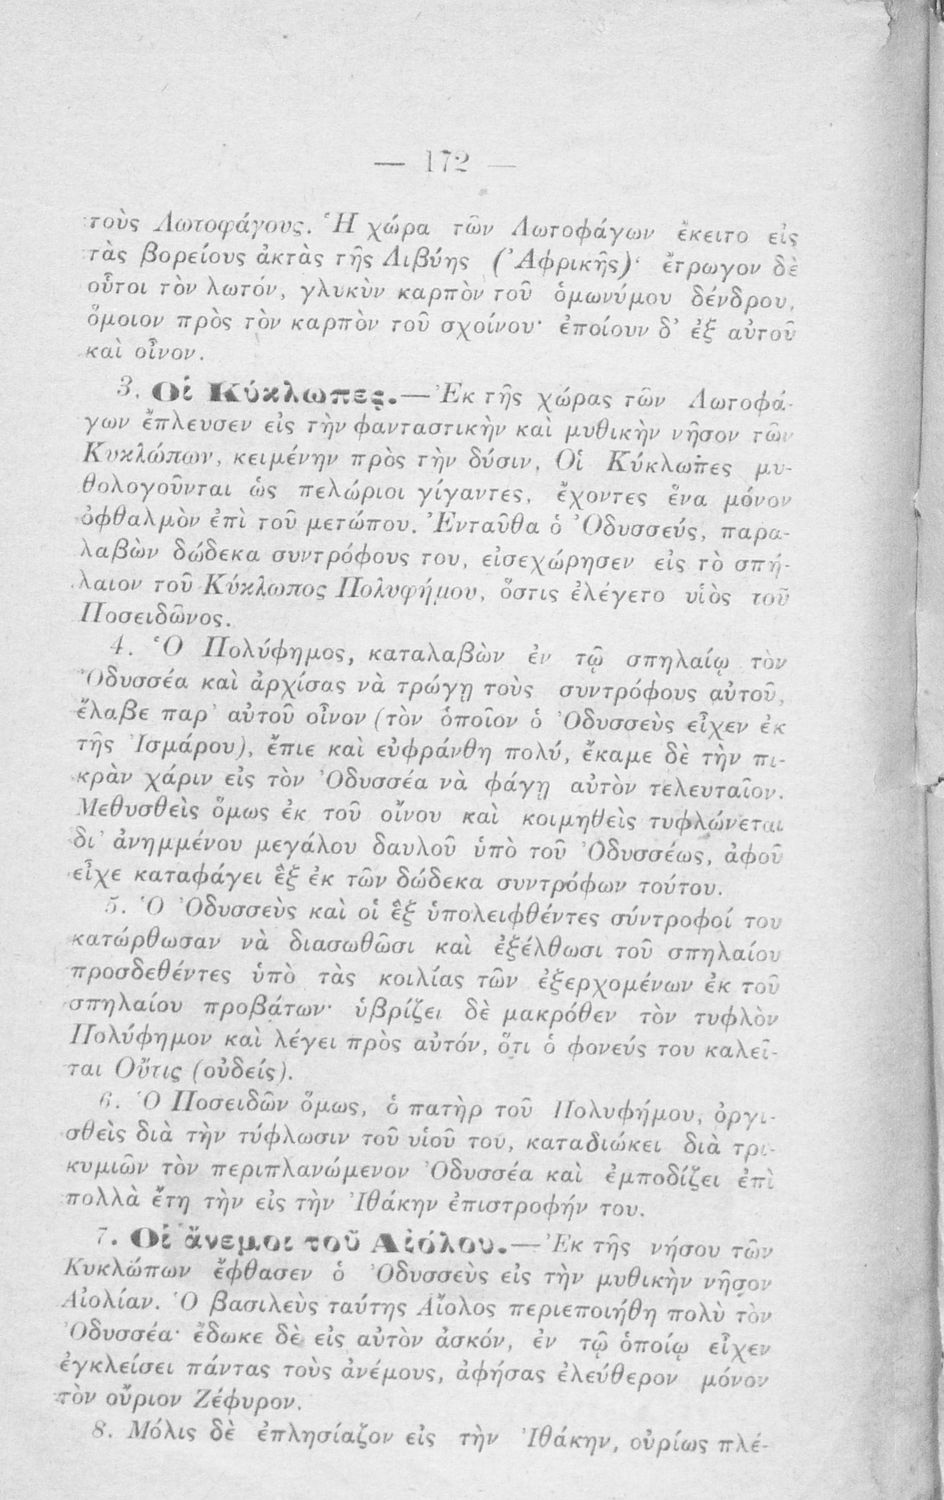 — 172 —
τοὺς Λωτοφάγους. Ἡ χώρα τῶν Λωτοφάγων ἔκειτο εἰς
τὰς βορείους ἀκτὰς τῆς Λιβύης (Ἀφρικῆς)· ἔτρωγον δὲ
οὗτοι τὸν λωτόν, γλυκὺν καρπὸν τοῦ ὁμωνύμου δένδρου,
ὅμοιον πρὸς τὸν καρπὸν τοῦ σχοίνου· ἐποίουν δ' ἐξ αὐτοῦ
καὶ οἶνον.
3. Οἱ Κύκλωπες.— Ἐκ τῆς χώρας τῶν Λωτοφά-
γων ἔπλευσεν εἰς τὴν φανταστικὴν καὶ μυθικὴν νῆσον τῶν
Κυκλώπων, κειμένην πρὸς τὴν δύσιν, Οἱ Κύκλωπες μυ-
θολογοῦνται ὡς πελώριοι γίγαντες, ἔχοντες ἕνα μόνον
ὀφθαλμὸν ἐπὶ τοῦ μετώπου. Ἐνταῦθα ὁ Ὀδυσσεύς, παρα-
λαβὼν δώδεκα συντρόφους του, εἰσεχώρησεν εἰς τὸ σπή-
λαιον τοῦ Κύκλωπος Πολυφήμου, ὅστις ἐλέγετο υἱὸς τοῦ
Ποσειδῶνος.
4. Ὁ Πολύφημος, καταλαβὼν ἐν τῷ σπηλαίῳ τὸν
Ὀδυσσέα καὶ ἀρχίσας νὰ τρώγῃ τοὺς συντρόφους αὐτοῦ,
ἔλαβε παρ' αὐτοῦ οἶνον (τὸν ὁποῖον ὁ Ὀδυσσεὺς εἶχεν ἐκ
τῆς Ἰσμάρου), ἔπιε καὶ εὐφράνθη πολύ, ἔκαμε δὲ τὴν πι-
κρὰν χάριν εἰς τὸν Ὀδυσσέα νὰ φάγῃ αὐτὸν τελευταῖον.
Μεθυσθεὶς ὅμως ἐκ τοῦ οἴνου καὶ κοιμηθεὶς τυφλώνεται
δι' ἀνημμένου μεγάλου δαυλοῦ ὑπὸ τοῦ Ὀδυσσέως, ἀφοῦ
εἶχε καταφάγει ἓξ ἐκ τῶν δώδεκα συντρόφων τούτου.
5. Ὁ Ὀδυσσεὺς καὶ οἱ ἓξ ὑπολειφθέντες σύντροφοί του
κατώρθωσαν νὰ διασωθῶσι καὶ ἐξέλθωσι τοῦ σπηλαίου
προσδεθέντες ὑπὸ τὰς κοιλίας τῶν ἐξερχομένων ἐκ τοῦ
σπηλαίου προβάτων· ὑβρίζει δὲ μακρόθεν τὸν τυφλὸν
Πολύφημον καὶ λέγει πρὸς αὐτόν, ὅτι ὁ φονεύς του καλεῖ-
ται Οὖτις (οὐδείς).
6. Ὁ Ποσειδῶν ὅμως, ὁ πατὴρ τοῦ Πολυφήμου, ὀργι-
σθεὶς διὰ τὴν τύφλωσιν τοῦ υἱοῦ του, καταδιώκει διὰ τρι-
κυμιῶν τὸν περιπλανώμενον Ὀδυσσέα καὶ ἐμποδίζει ἐπὶ
πολλὰ ἔτη τὴν εἰς τὴν Ἰθάκην ἐπιστροφήν του.
7. Οἱ ἄνεμοι τοῦ Αἰόλου.— Ἐκ τῆς νήσου τῶν
Κυκλώπων ἔφθασεν ὁ Ὀδυσσεὺς εἰς τὴν μυθικὴν νῆσον
Αἰολίαν. Ὁ βασιλεὺς ταύτης Αἴολος περιεποιήθη πολὺ τὸν
Ὀδυσσέα· ἔδωκε δὲ εἰς αὐτὸν ἀσκόν, ἐν τῷ ὁποίῳ εἶχεν
ἐγκλείσει πάντας τοὺς ἀνέμους, ἀφήσας ἐλεύθερον μόνον
τὸν οὔριον Ζέφυρον.
8. Μόλις δὲ ἐπλησίαζον εἰς τὴν Ἰθάκην, οὐρίως πλέ-